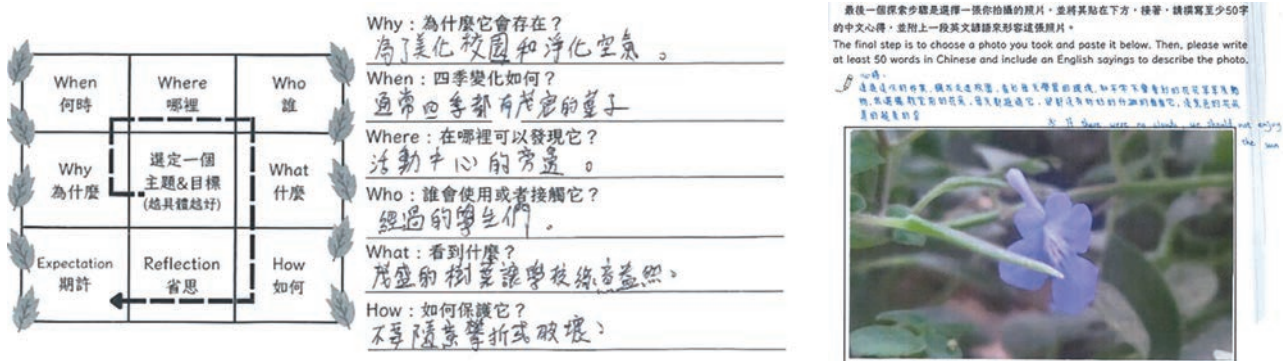 When
何時
Where
哪裡
Who
誰
Why
為什麼
選定一個
主題&目標
(越具體越好)
What
什麼
Expectation
期許
Reflection
省思
How
如何
Why：為什麼它會存在？
為了美化校園和淨化空氣。
When：四季變化如何？
通常四季都有茂密的葉子
Where：在哪裡可以發現它？
活動中心的旁邊。
Who：誰會使用或者接觸它？
經過的學生們。
What：看到什麼？
茂盛的樹葉讓學校綠意盎然。
How：如何保護它？
不要隨意攀折或破壞。
最後一個探索步驟是選擇一張你拍攝的照片，並將其貼在下方，接著，請撰寫至少50字
的中文心得，並附上一段英文諺語來形容這張照片。
The final step is to choose a photo you took and paste it below. Then, please write
at least 50 words in Chinese and include an English sayings to describe the photo.
心得：
If there were no clouds, we should not enjoy
the sun